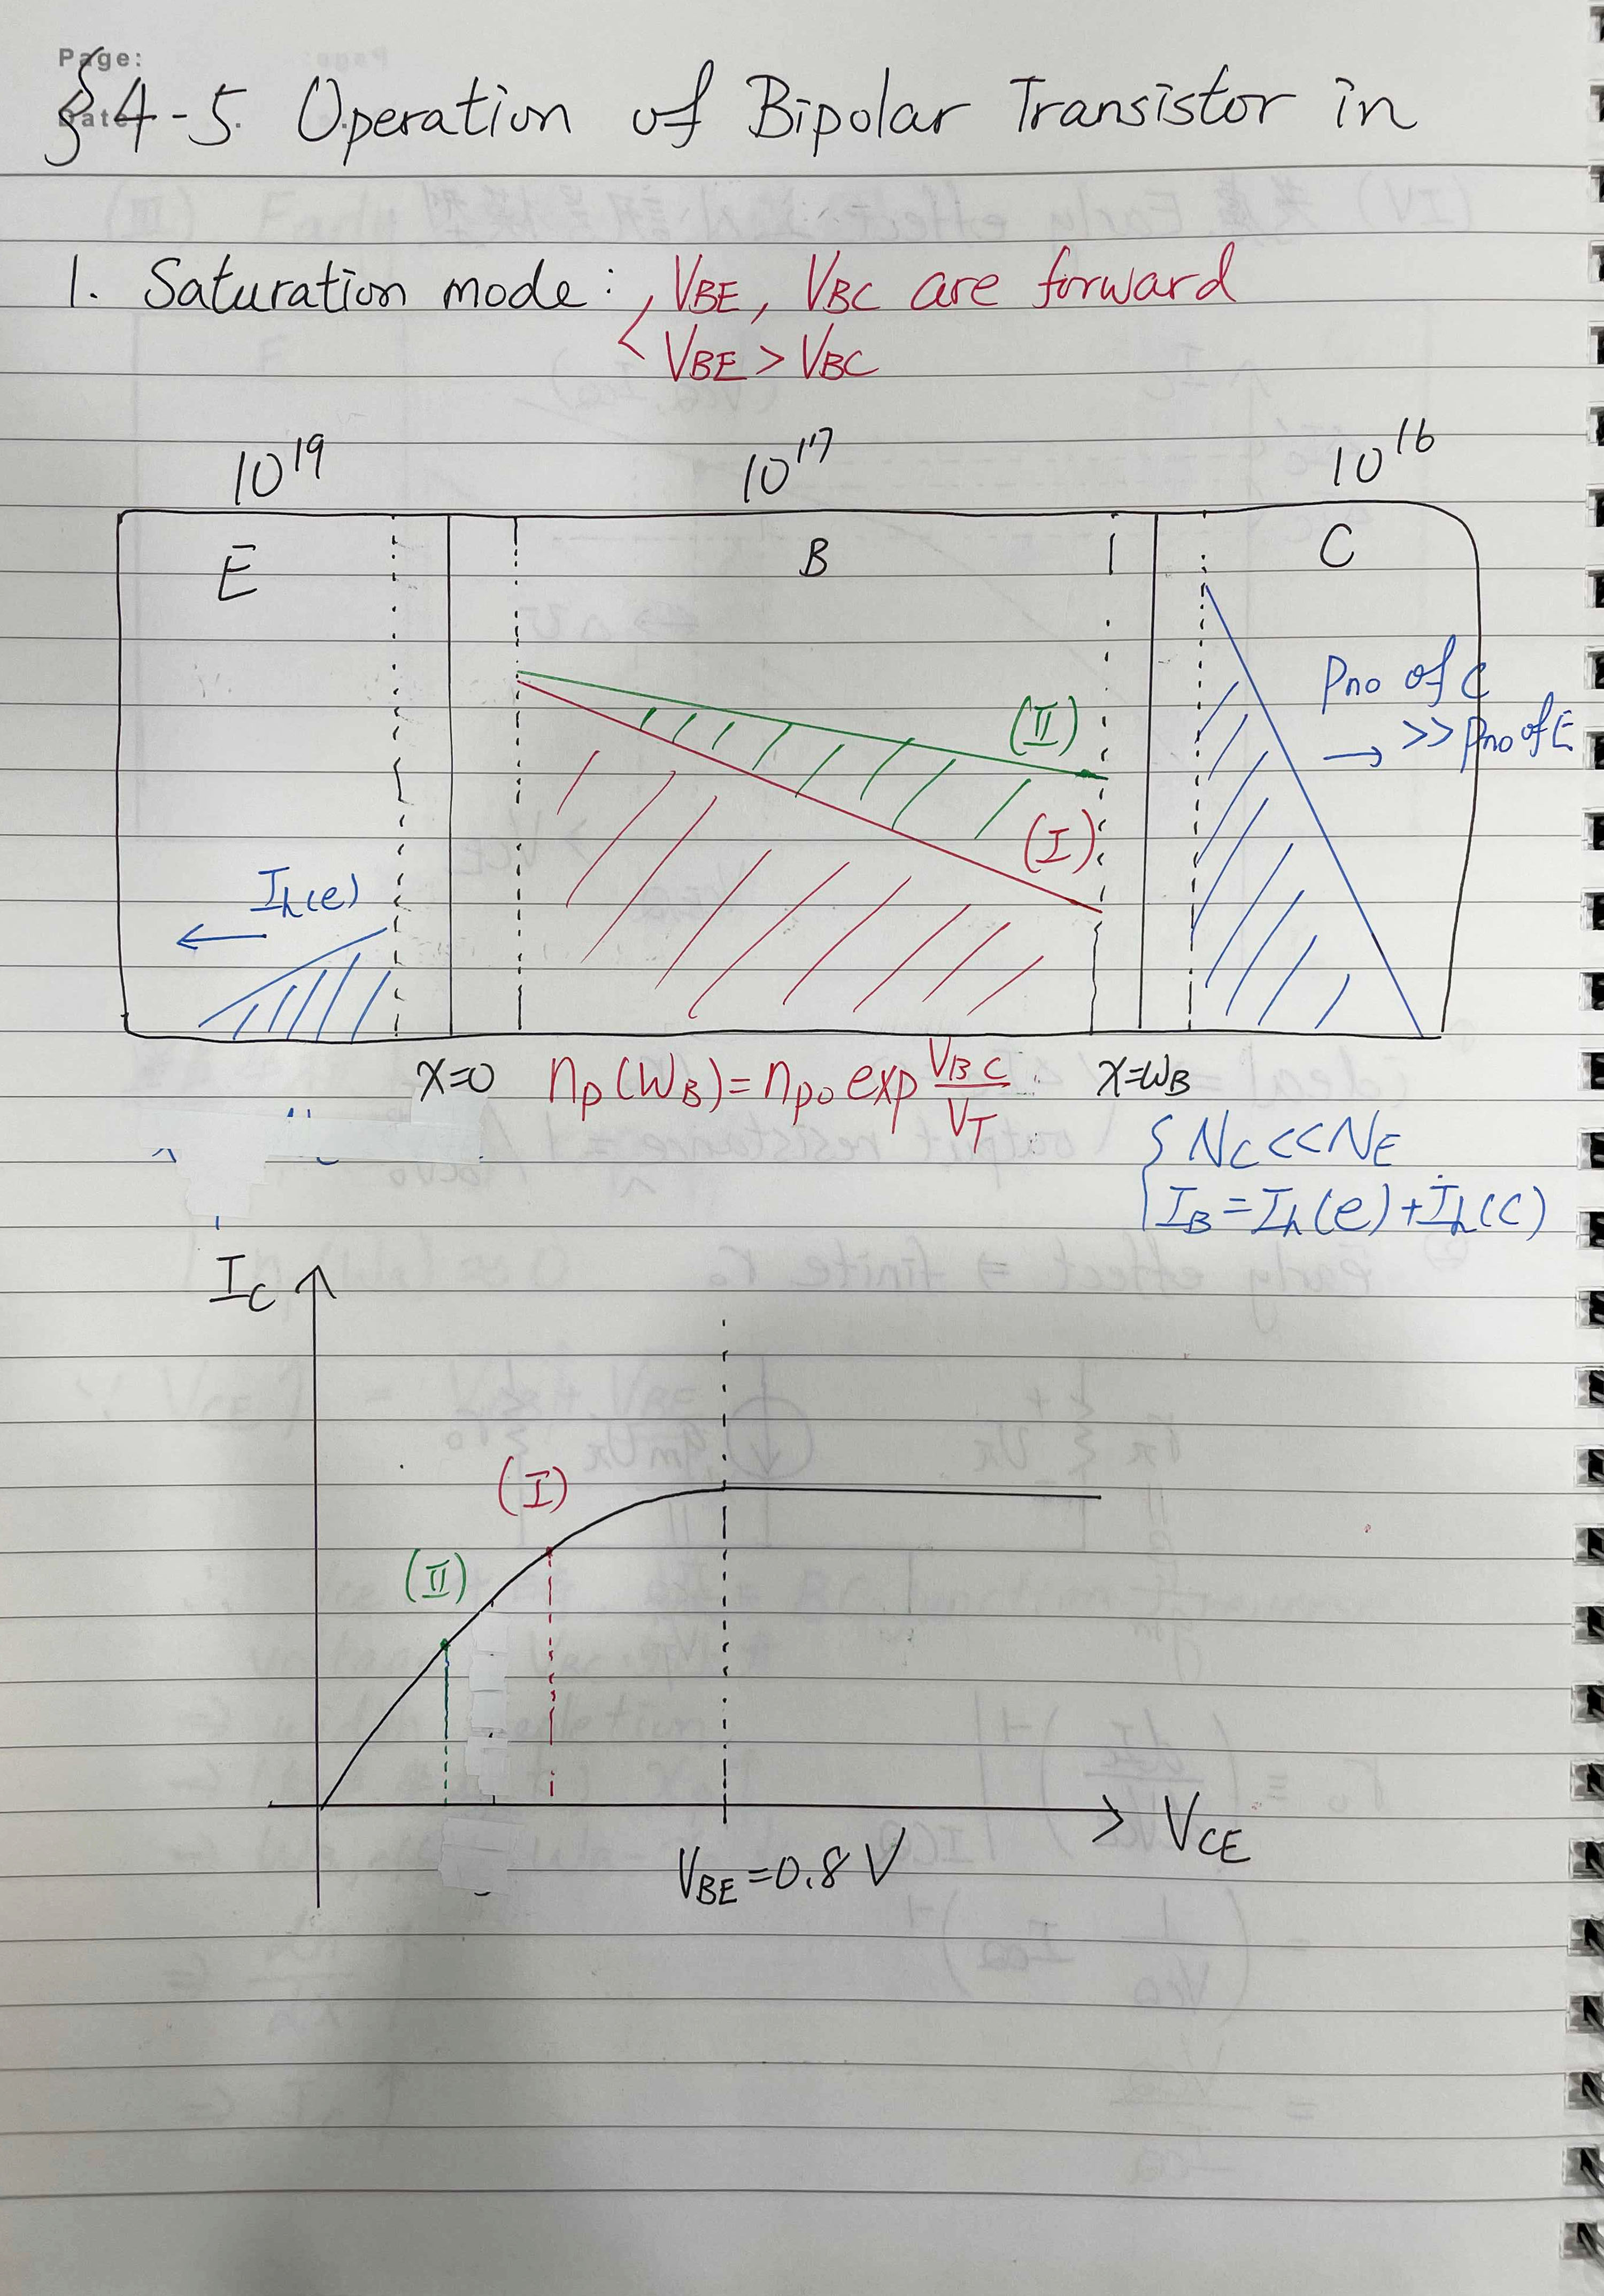 Page:
Date:
§4-5. Operation of Bipolar Transistor in
1. Saturation mode: VBE, VBC are forward
VBE > VBC
10^19 10^17 10^16
E B C
(II)
Pno of C
→ >> Pno of E
(I)
Ih(e)
x=0 np(WB) = npo exp VBC/VT x=WB
NC << NE
IB = Ih(e) + Ih(c)
IC
(I)
(II)
VCE
VBE=0.8V